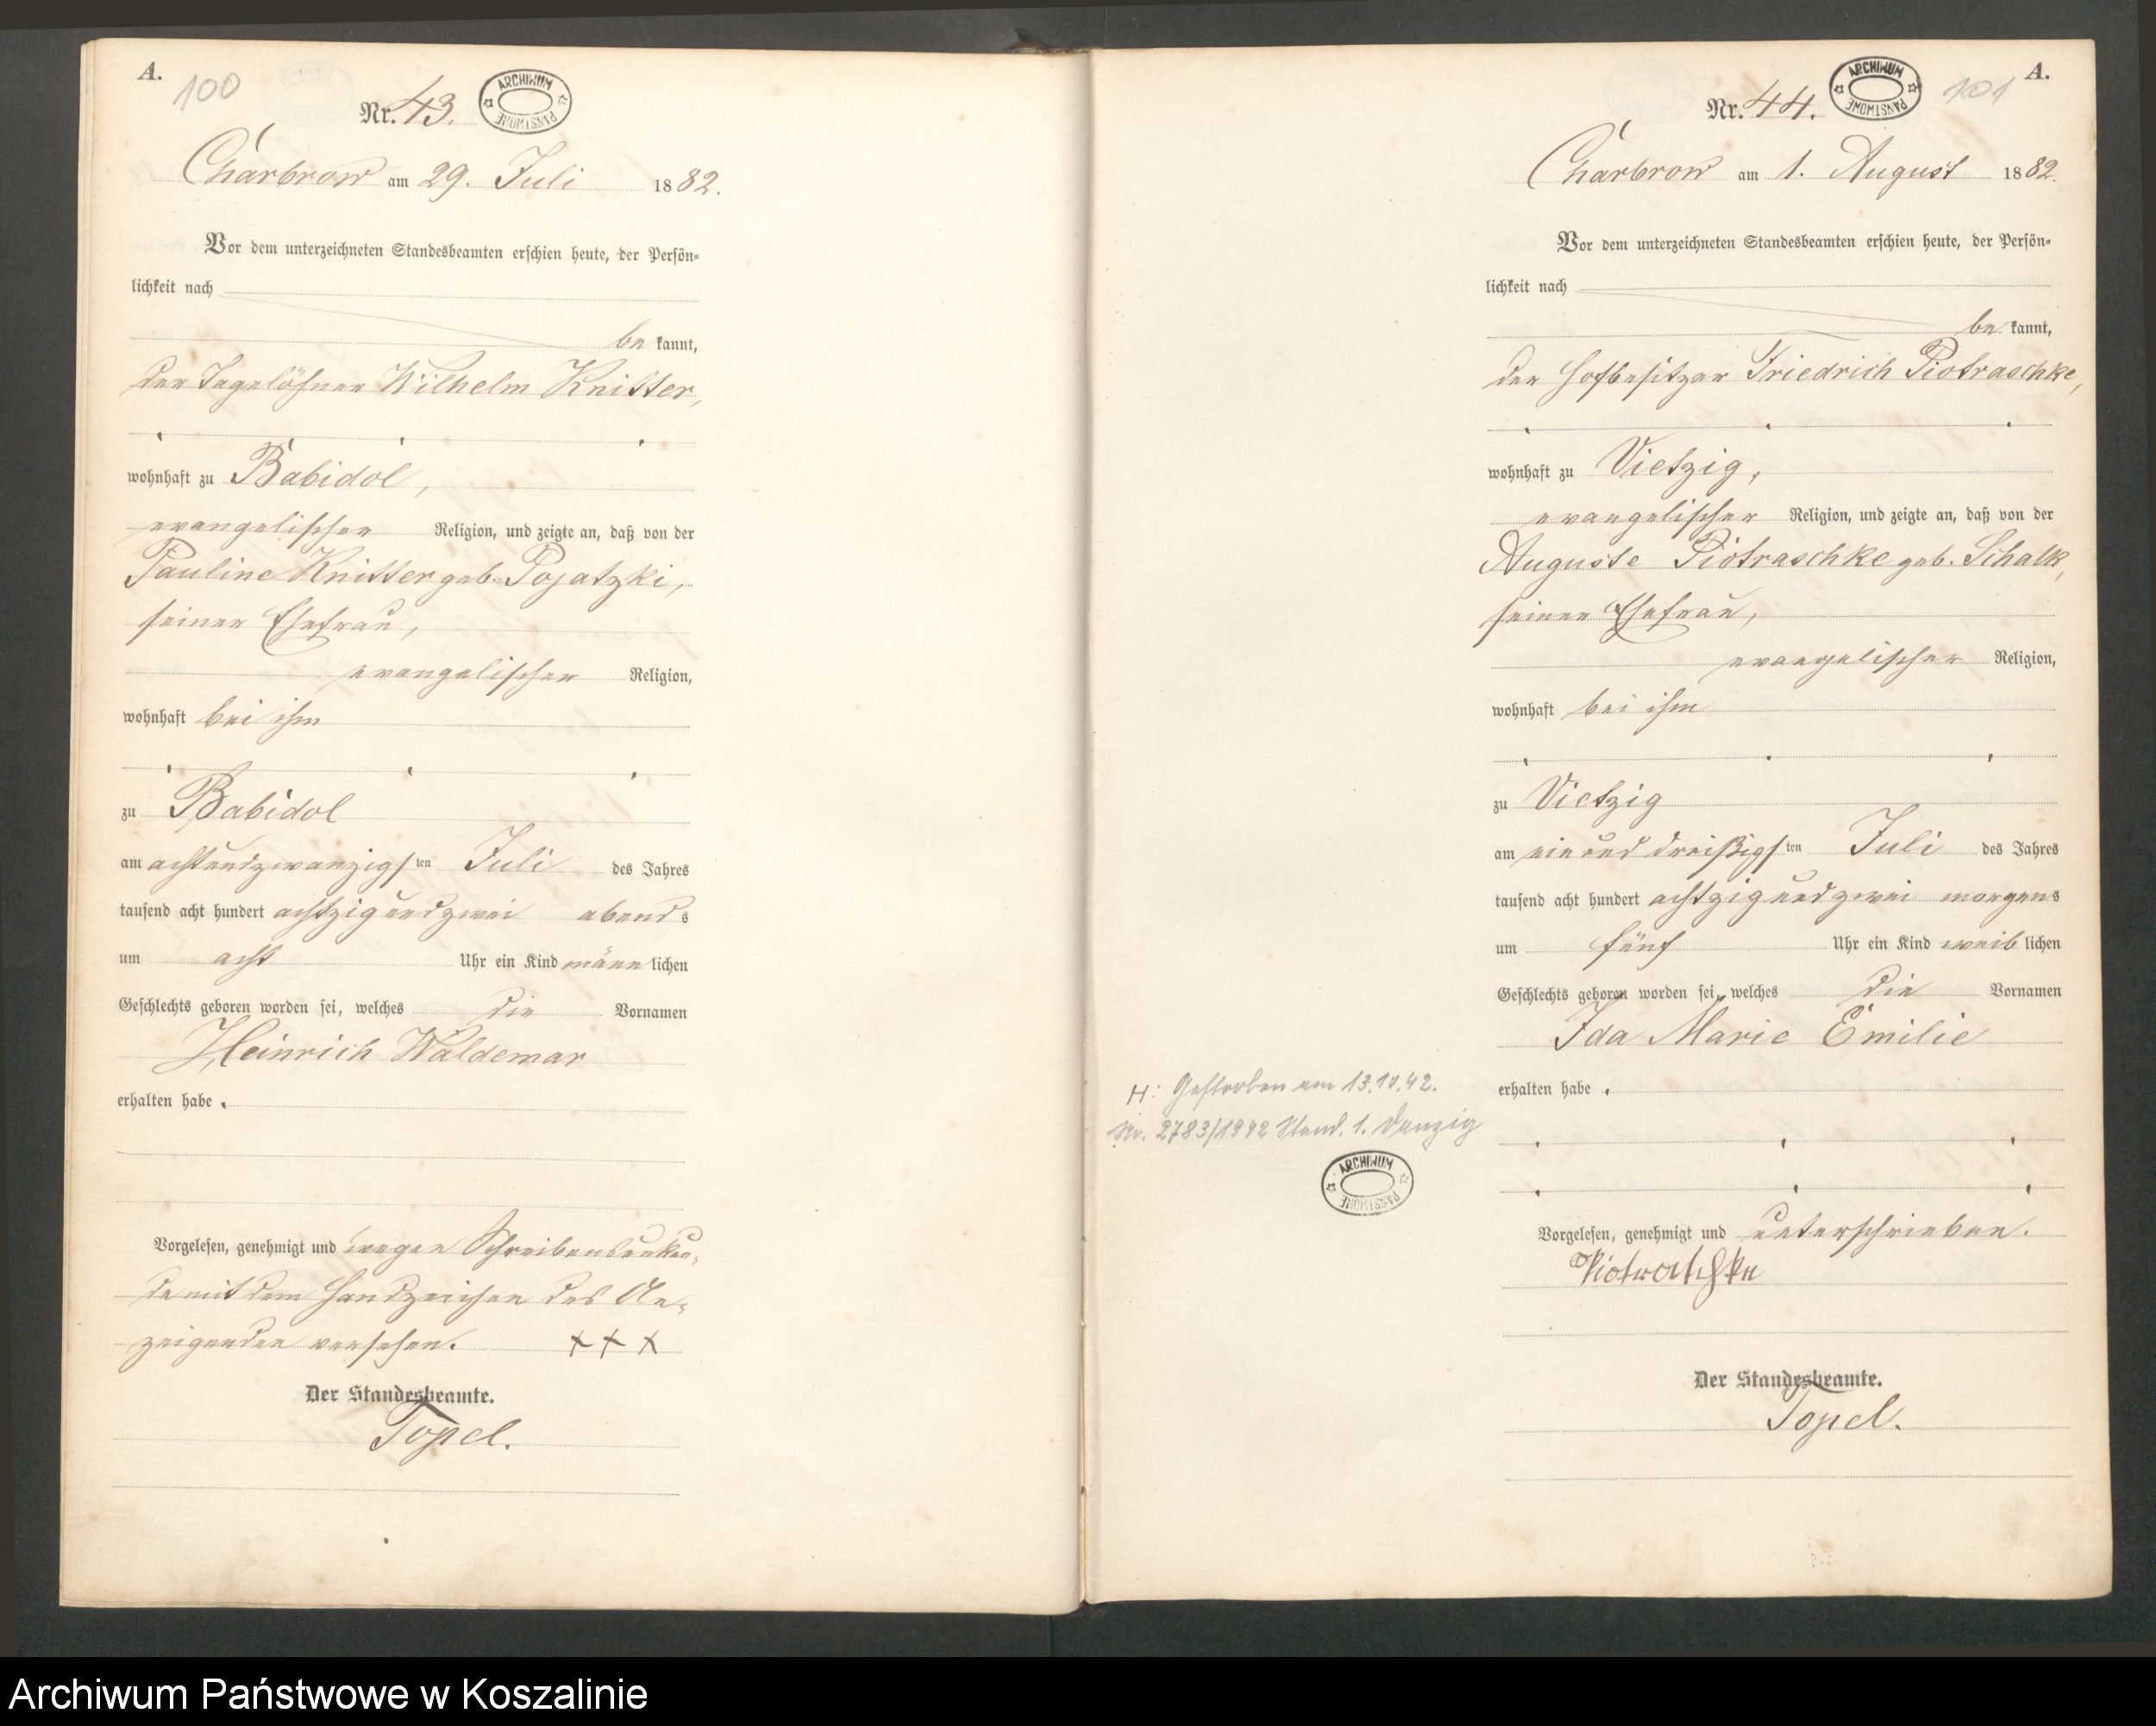 A.
100
Nr. 43.
ARCHIWUM PAŃSTWOWE
Charbrow am 29. Juli 1882.
Vor dem unterzeichneten Standesbeamten erschien heute, der Persön=
lichkeit nach
be kannt,
der Tagelöhner Wilhelm Knitter,
wohnhaft zu Babidol,
evangelischer Religion, und zeigte an, daß von der
Pauline Knitter geb. Pojatzki,
seiner Ehefrau,
evangelischer Religion,
wohnhaft bei ihm
zu Babidol
am achtundzwanzigsten Juli des Jahres
tausend acht hundert achtzig und zwei abends
um acht Uhr ein Kind männlichen
Geschlechts geboren worden sei, welches die Vornamen
Heinrich Waldemar
erhalten habe.
Vorgelesen, genehmigt und wegen Schreibensunkun=
de mit dem Handzeichen des An=
zeigenden versehen. +++
Der Standesbeamte.
Topel.
A.
101
Nr. 44.
ARCHIWUM PAŃSTWOWE
Charbrow am 1. August 1882.
Vor dem unterzeichneten Standesbeamten erschien heute, der Persön=
lichkeit nach
be kannt,
der Hofbesitzer Friedrich Piotraschke,
wohnhaft zu Vietzig,
evangelischer Religion, und zeigte an, daß von der
Auguste Piotraschke geb. Schalk,
seiner Ehefrau,
evangelischer Religion,
wohnhaft bei ihm
zu Vietzig
am ein und dreißigsten Juli des Jahres
tausend acht hundert achtzig und zwei morgens
um fünf Uhr ein Kind weiblichen
Geschlechts geboren worden sei, welches die Vornamen
Ida Marie Emilie
erhalten habe.
H: Gestorben am 13.10.42.
Nr. 2783/1942 Stand. 1. Danzig
ARCHIWUM PAŃSTWOWE
Vorgelesen, genehmigt und unterschrieben.
Piotraschke
Der Standesbeamte.
Topel.
Archiwum Państwowe w Koszalinie